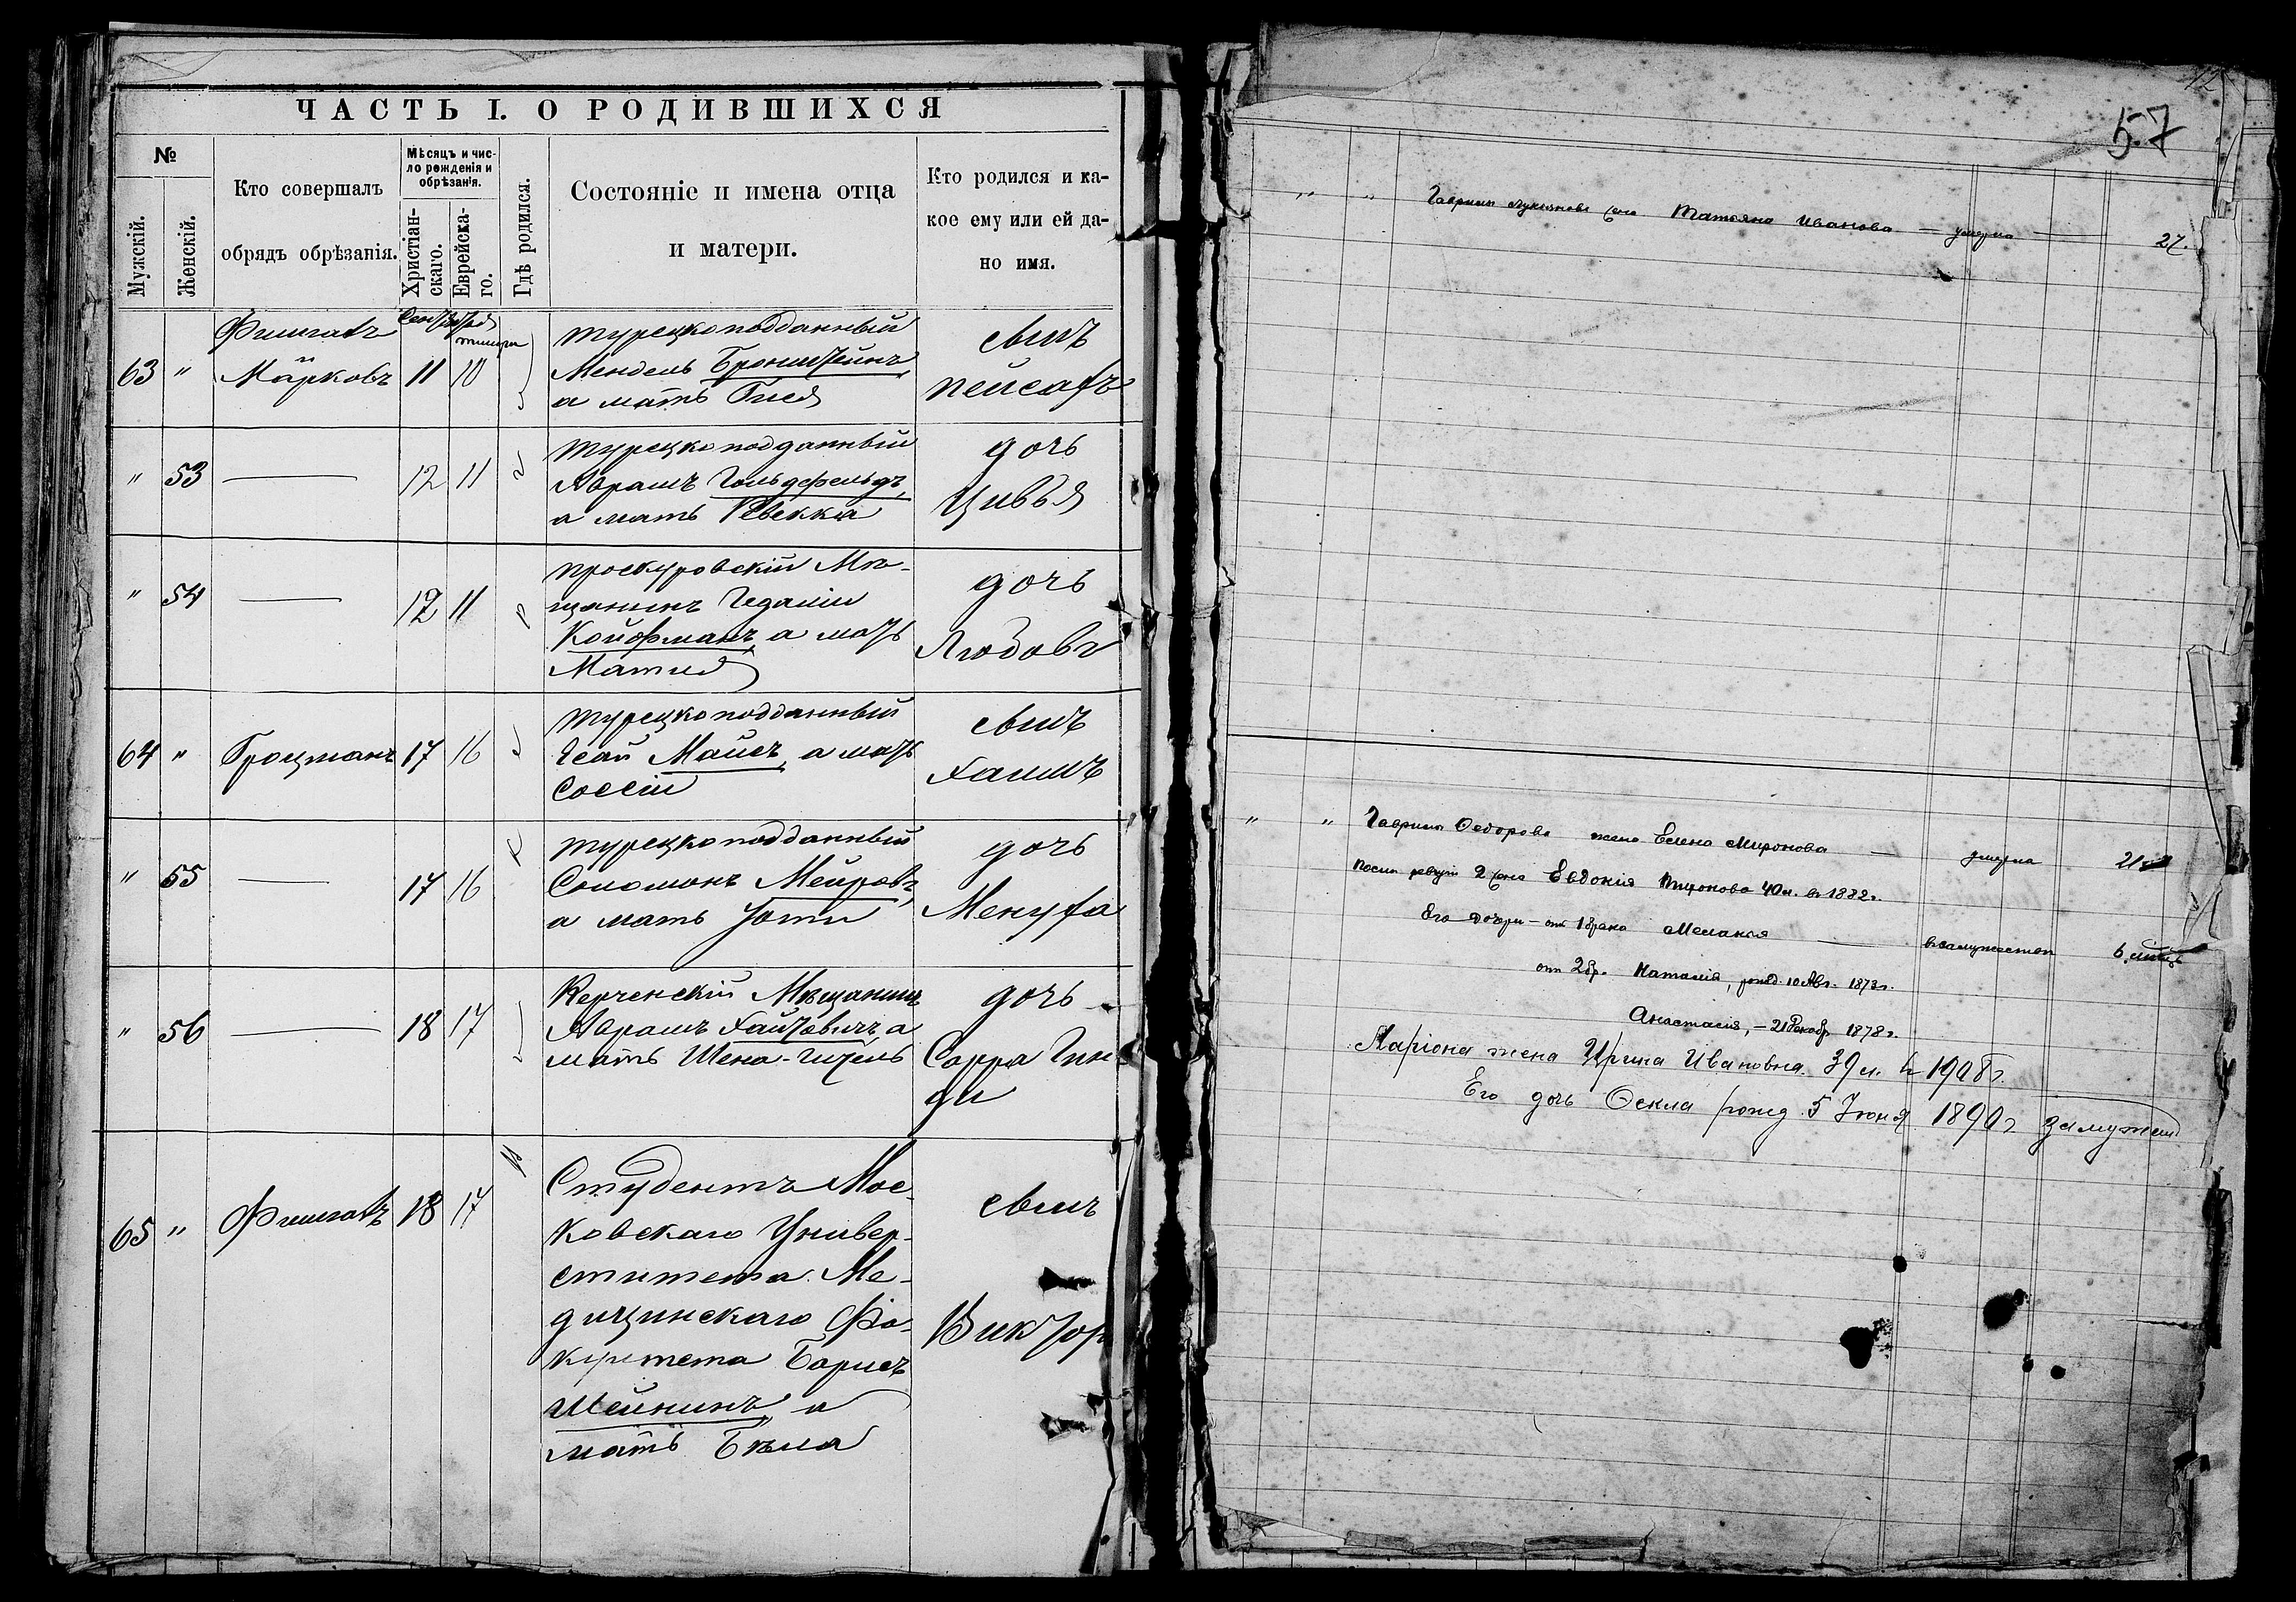 ЧАСТЬ I. О РОДИВШИХСЯ
№
Мужскій.
Женскій.
Кто совершалъ
обрядъ обрѣзанія.
Мѣсяцъ и чис-
ло рожденія и
обрѣзанія.
Христіан-
скаго.
Еврейска-
го.
Гдѣ родился.
Состояніе и имена отца
и матери.
Кто родился и ка-
кое ему или ей да-
но имя.
63 " Марковъ 11 10
турецкоподданный
Мендель Бронштейнъ,
а мать Гися
сынъ
Пейсахъ
" 53 — 12 11
турецкоподданный
Абрамъ Гольдфельдъ,
а мать Ревекка
дочь
Цивья
" 54 — 12 11
проскуровскій Мѣ-
щанинъ Гедалій
Койфманъ, а мать
Матля
дочь
Любовь
64 " Гроцманъ 17 16
турецкоподданный
Исай Майсъ, а мать
Соссій
сынъ
Хаимъ
" 55 — 17 16
турецкоподданный
Соломонъ Мейровъ,
а мать
дочь
Менуха
" 56 — 18 17
Керченскій Мѣщанинъ
Абрамъ Хаимовичъ, а
мать Шена-Гитель
дочь
Сарра Гин-
ди
65 " 18 17
Студентъ Мос-
ковскаго Универ-
ситета Ме-
дицинскаго Фа-
культета Борисъ
Шейнинъ, а
мать Бѣла
сынъ
Викторъ
12
57
" " Гаврилы Лукьянова жена Татьяна Иванова — умерла — 27.
" " Гаврилы Федорова жена Елена Миронова — умерла 21
2 жена Евдокія 40 л. въ 1882 г.
Его дочери — отъ 1 брака Меланья — въ замужествѣ 6
отъ 2 бр. Наталія, рожд. 10 Авг. 1873 г.
Анастасія, — 21 Декабр. 1878 г.
Ларіона жена Ирина Ивановна 39 л. въ 1908 г.
Его дочь Фекла рожд. 5 Іюня 1890 г. замужем